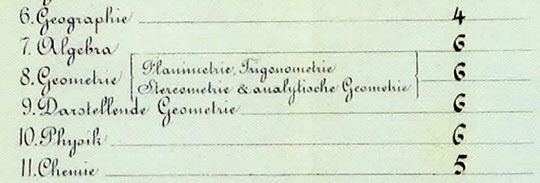 6. Geographie 4
7. Algebra 6
8. Geometrie { Planimetrie, Trigonometrie 6
Stereometrie & analytische Geometrie }
9. Darstellende Geometrie 6
10. Physik 6
11. Chemie 5